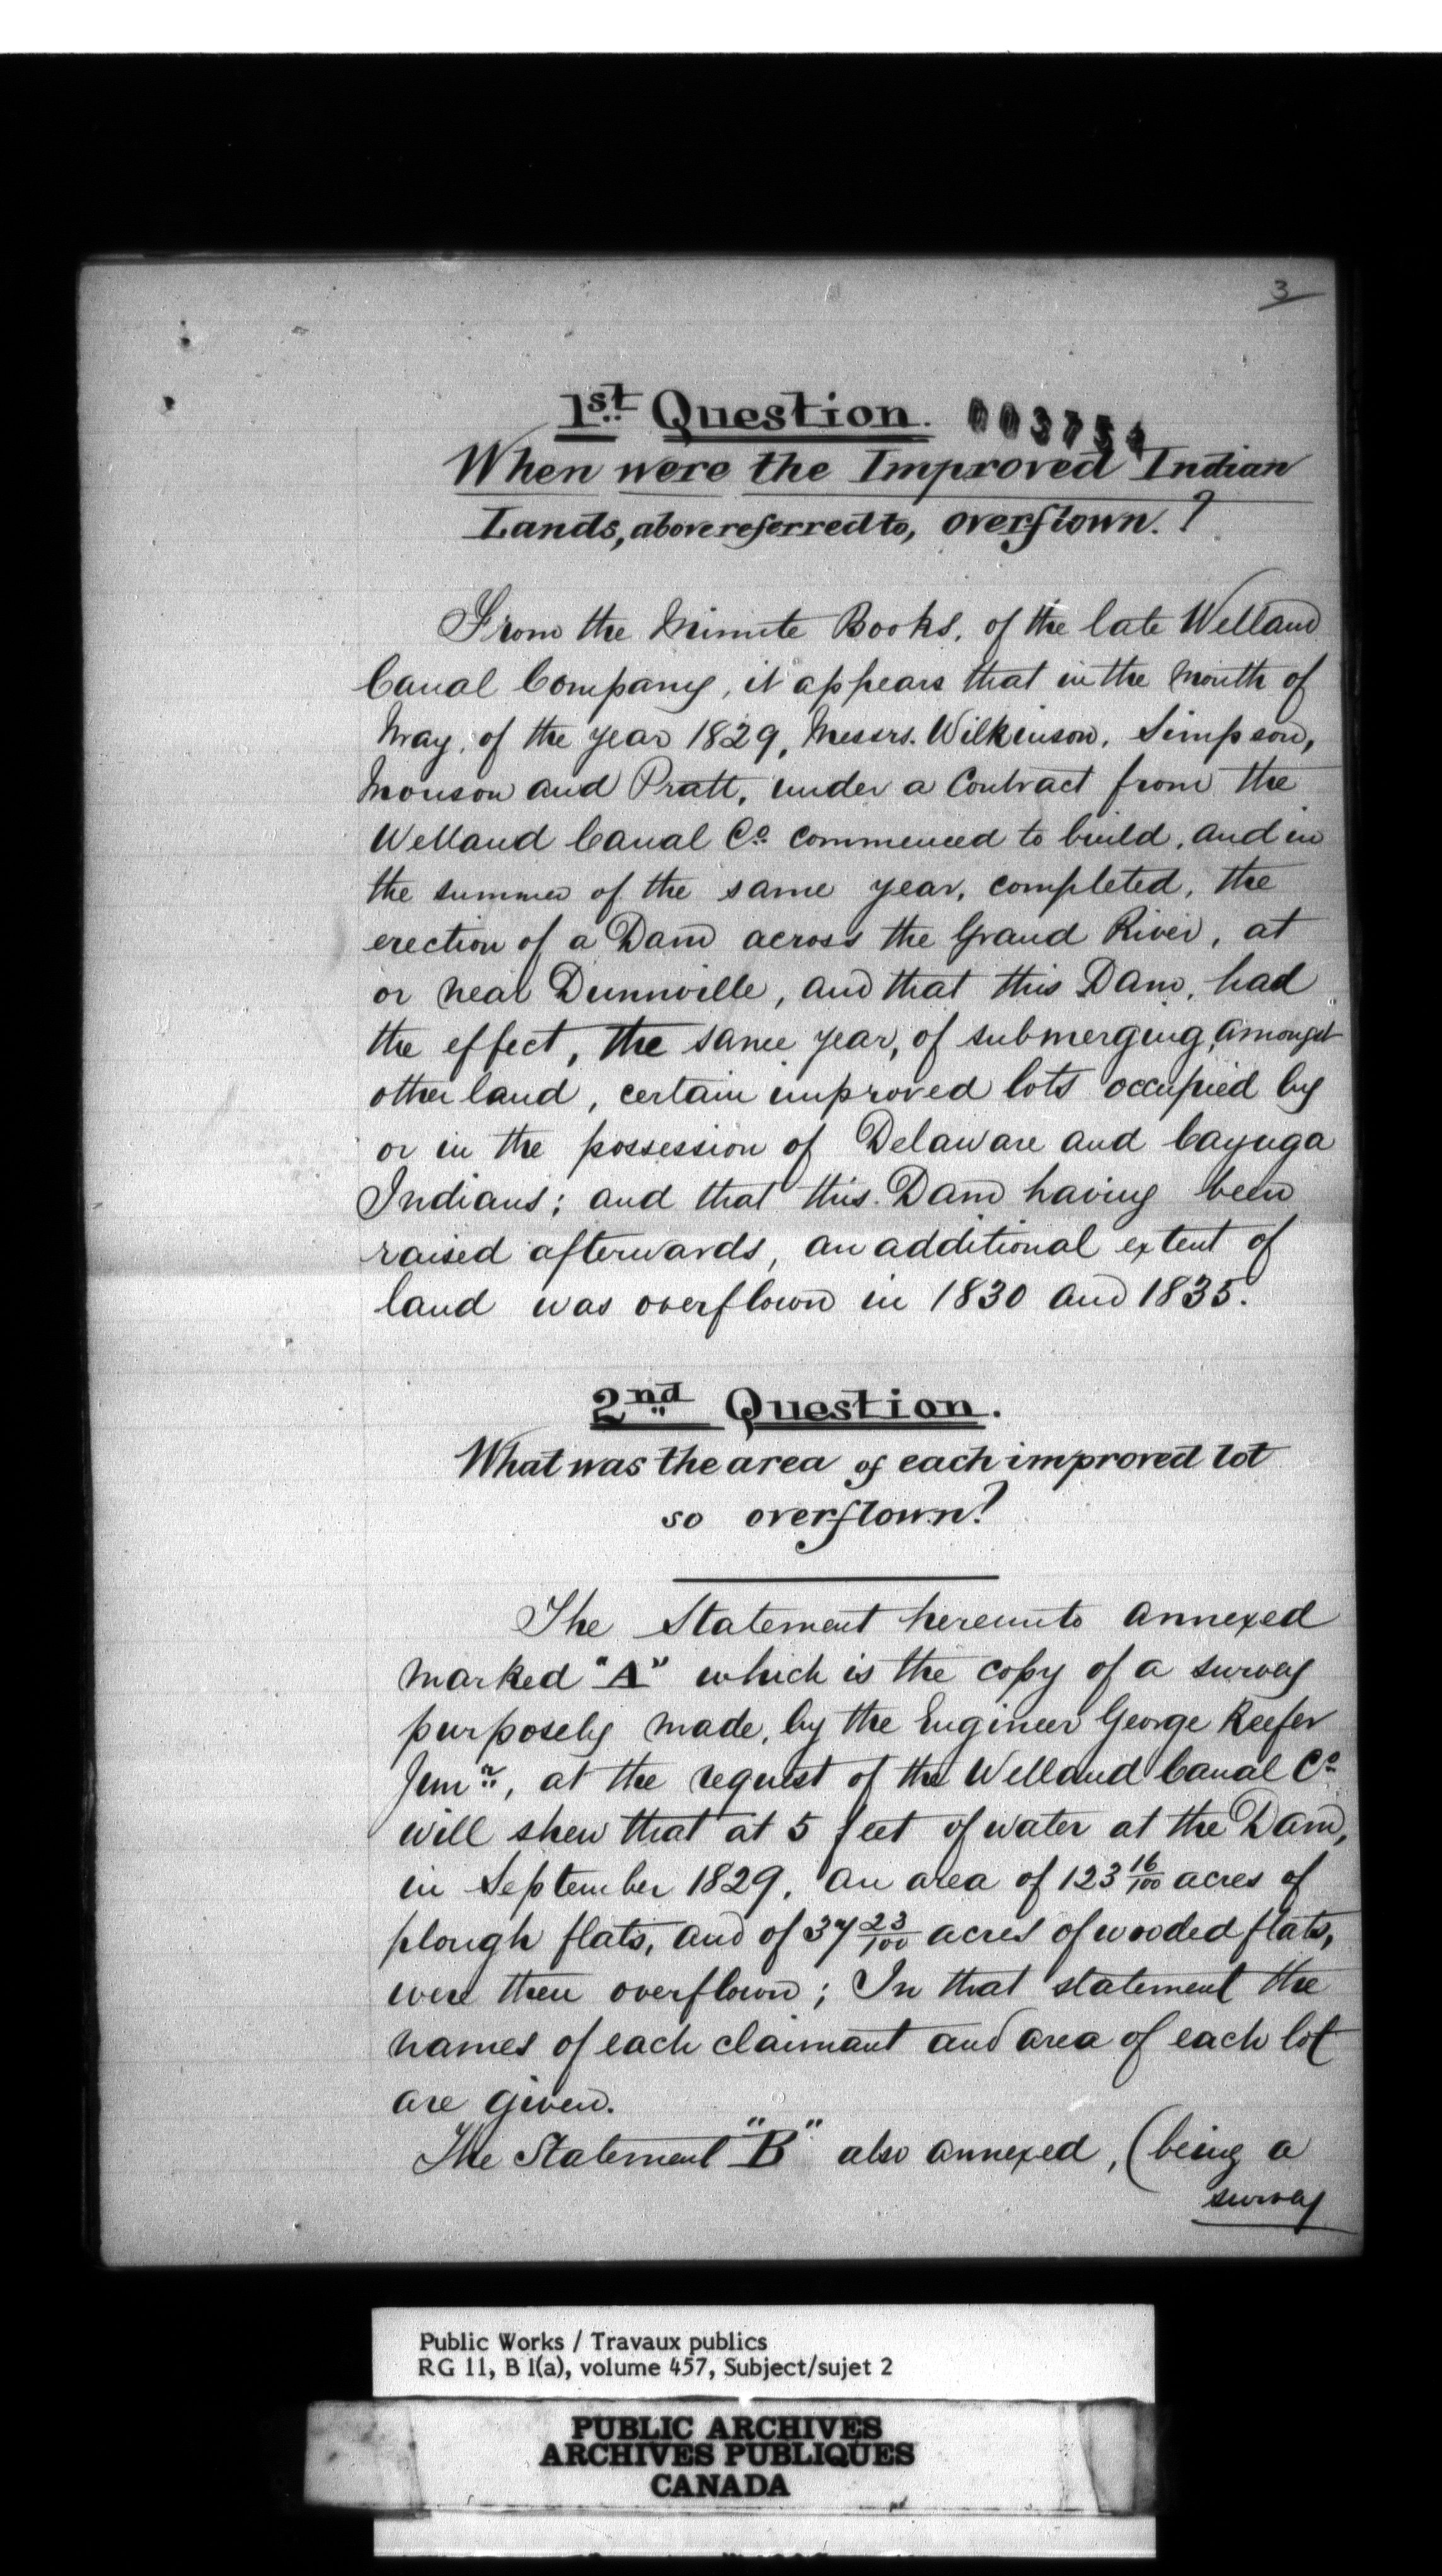 3
1st Question.
When were the Improved Indian
Lands, above referred to, overflown.?
From the Minute Books, of the late Welland
Canal Company, it appears that in the month of
May, of the year 1829, Messrs. Wilkinson, Simpson,
Monson and Pratt, under a Contract from the
Welland Canal Co. commenced to build, and in
the summer of the same year, completed, the
erection of a Dam across the Grand River, at
or near Dunnville, and that this Dam, had
the effect, the same year, of submerging, amongst
other land, certain improved lots occupied by
or in the possession of Delaware and Cayuga
Indians; and that this Dam having been
raised afterwards, an additional extent of
land was overflown in 1830 and 1835.
2nd Question.
What was the area of each improved lot
so overflown?
The Statement hereunto annexed
marked "A" which is the copy of a survey
purposely made, by the Engineer George Keefer
Junr., at the request of the Welland Canal Co.
will shew that at 5 feet of water at the Dam,
in September 1829, an area of 123 16/100 acres of
plough flats, and of 37 23/100 acres of wooded flats,
were then overflown; In that statement the
names of each claimant and area of each lot
are given.
The Statement "B" also annexed, (being a
survey
Public Works / Travaux publics
RG 11, B 1(a), volume 457, Subject/sujet 2
PUBLIC ARCHIVES
ARCHIVES PUBLIQUES
CANADA